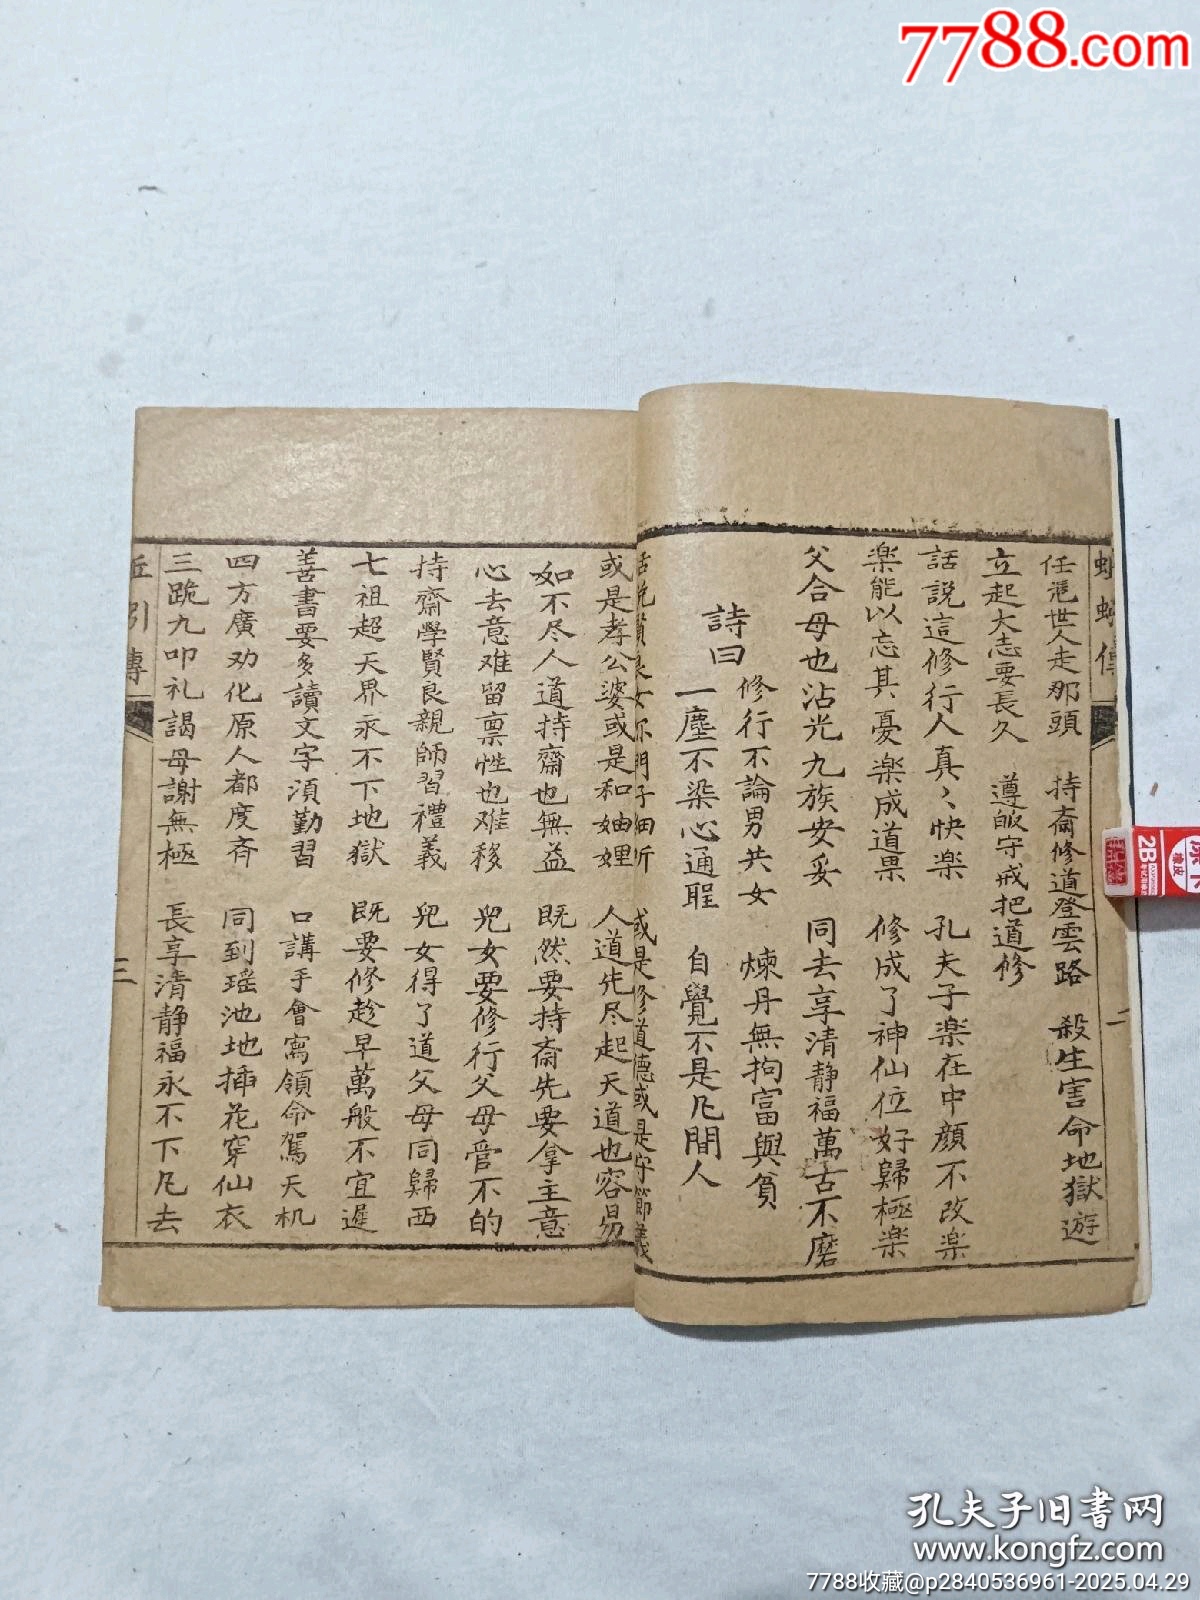 7788.com
任凴世人走那頭 持斎修道登雲路 殺生害命地獄遊
立起大志要長久 遵皈守戒把道修
話說這修行人真〻快楽 孔夫子楽在中顔不改楽
楽能以忘其憂楽成道果 修成了神仙位好歸極楽
父合母也沾光九族安妥 同去享清靜福萬古不磨
詩曰
修行不論男共女 煉丹無拘富與貧
一塵不染心通 自覺不是凡間人
女你們子細听 或是修道德或是守節義
或是孝公婆或是和妯娌 人道先尽起天道也容易
如不尽人道持齋也無益 既然要持斎先要拿主意
心去意难留禀性也难移 兒女要修行父母管不的
持齋學賢良親師習禮義 兒女得了道父母同歸西
七祖超天界永不下地獄 既要修趁早萬般不宜遲
善書要多讀文字須勤習 口講手會寫領命駕天机
四方廣劝化原人都度斉 同到瑶池地揷花穿仙衣
三跪九叩礼謁母謝無極 長享清静福永不下凡去
引傳
三
2B
橡皮
孔夫子旧书网
www.kongfz.com
7788收藏@p2840536961-2025.04.29